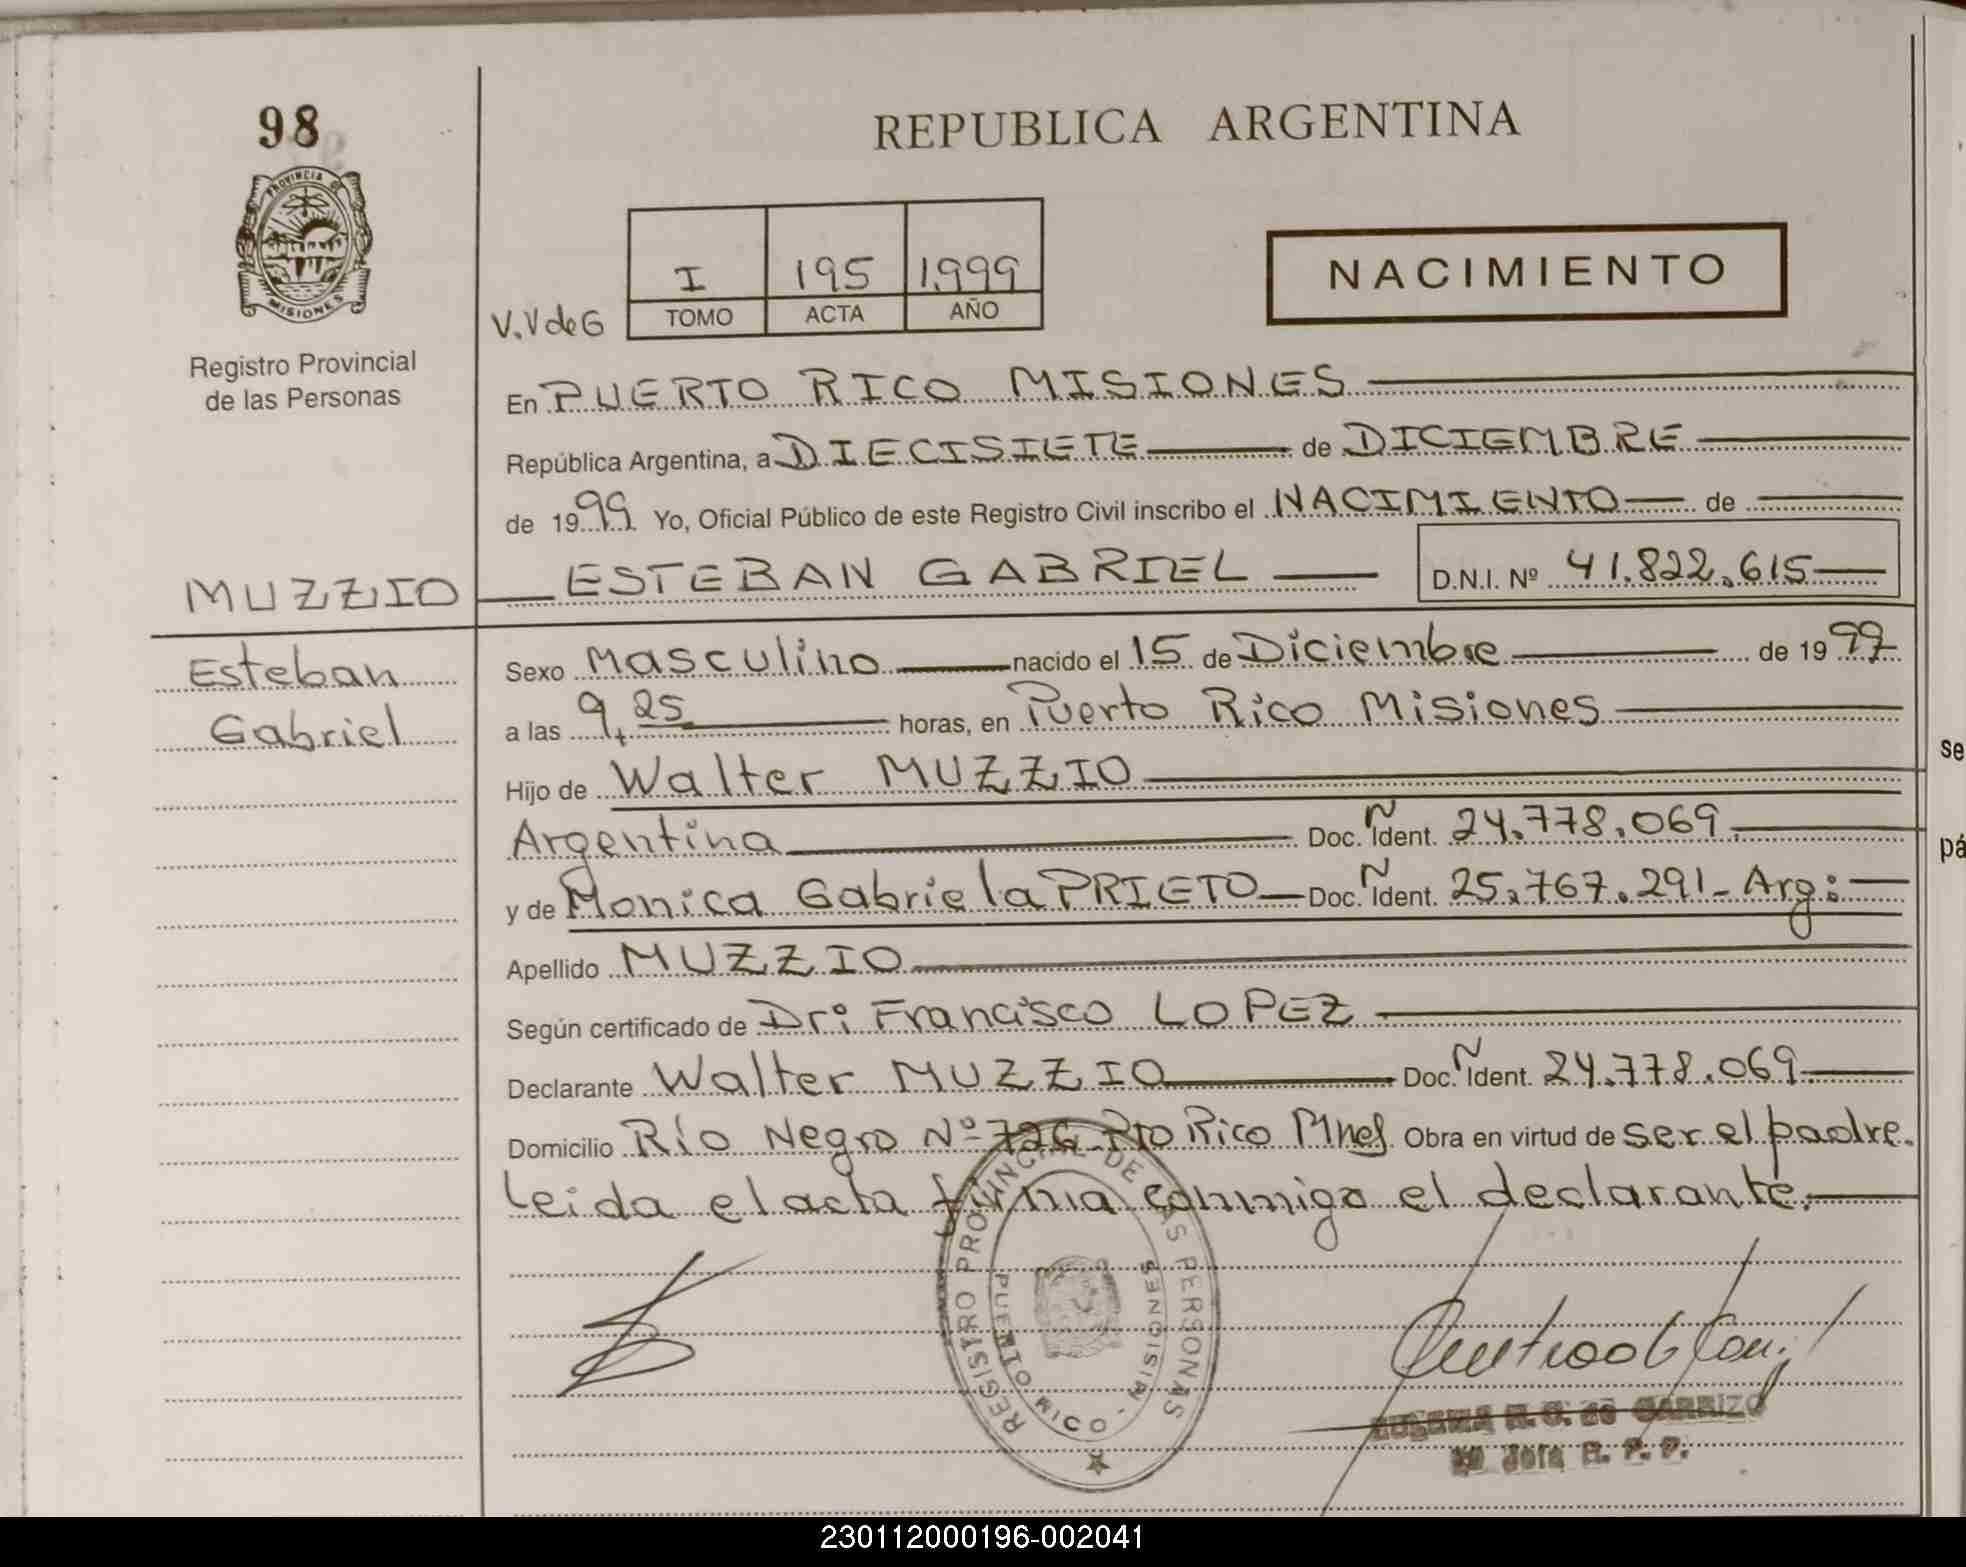 98
REPUBLICA ARGENTINA
PROVINCIA DE
MISIONES
Registro Provincial
de las Personas
V.V de G
I 195 1.999
TOMO ACTA AÑO
NACIMIENTO
En PUERTO RICO MISIONES
República Argentina, a DIECISIETE de DICIEMBRE
de 1999 Yo, Oficial Público de este Registro Civil inscribo el NACIMIENTO de
MUZZIO ESTEBAN GABRIEL D.N.I. Nº 41.822.615
Esteban Sexo Masculino nacido el 15 de Diciembre de 1997
Gabriel a las 9,25 horas, en Puerto Rico Misiones
Hijo de Walter MUZZIO
Argentina Doc. Ñ Ident. 24.778.069
y de Monica Gabriela PRIETO Doc. Ñ Ident. 25.767.291 - Arg:
Apellido MUZZIO
Según certificado de Dr: Francisco LOPEZ
Declarante Walter MUZZIO Doc. Ñ Ident. 24.778.069
Domicilio Río Negro Nº 726 Pto Rico Mnes Obra en virtud de ser el padre.
Leida el acta firma conmigo el declarante.
REGISTRO PROVINCIAL DE LAS PERSONAS
PUERTO RICO - MISIONES
de CARRIZO
Jefa R. P. P.
se
pá
230112000196-002041